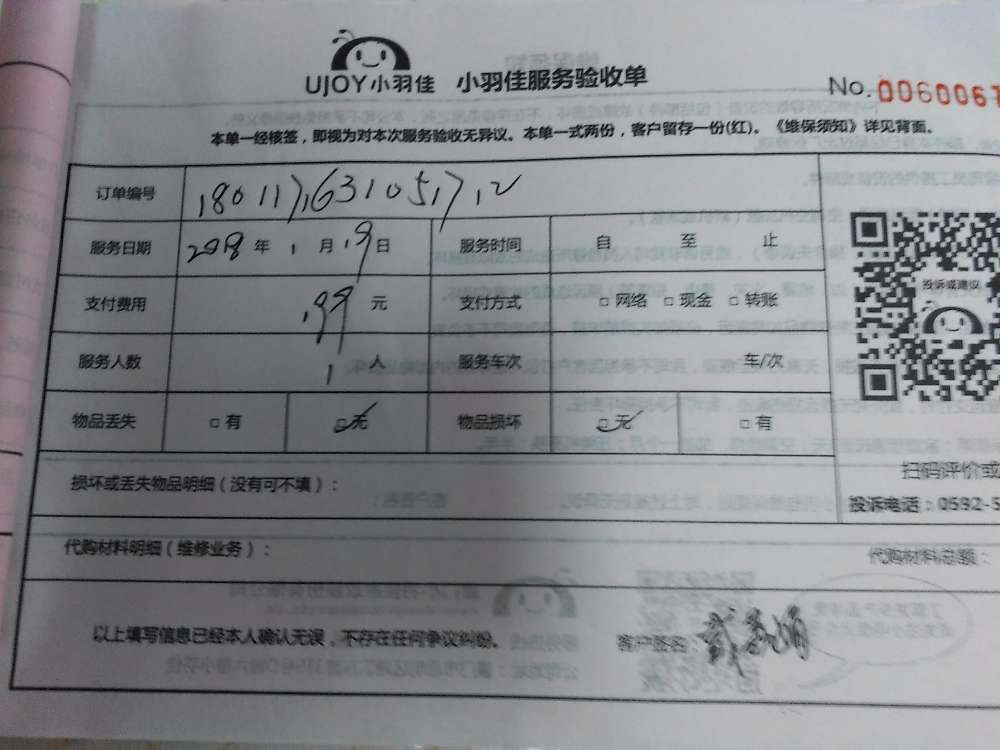 UJOY小羽佳 小羽佳服务验收单
No. 0060061
本单一经核签，即视为对本次服务验收无异议。本单一式两份，客户留存一份(红)。《维保须知》详见背面。
订单编号
服务日期 2018 年 1 月 19 日 服务时间 自 至 止
支付费用 199 元 支付方式 □ 网络 □ 现金 □ 转账
服务人数 1 人 服务车次 车/次
物品丢失 □ 有 □ 无 物品损坏 □ 无 □ 有
投诉或建议
扫码评价或
投诉电话：0592-5
损坏或丢失物品明细（没有可不填）：
代购材料明细（维修业务）： 代购材料总额：
以上填写信息已经本人确认无误，不存在任何争议纠纷。 客户签名：